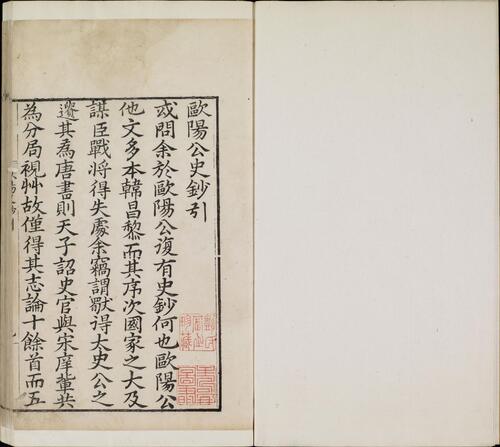 歐陽公史鈔引
或問余於歐陽公復有史鈔何也歐陽公
他文多本韓昌黎而其序次國家之大及
謀臣戰將得失處余竊謂獨得太史公之
遷其為唐書則天子詔史官與宋庠軰共
為分局視艸故僅得其志論十餘首而五